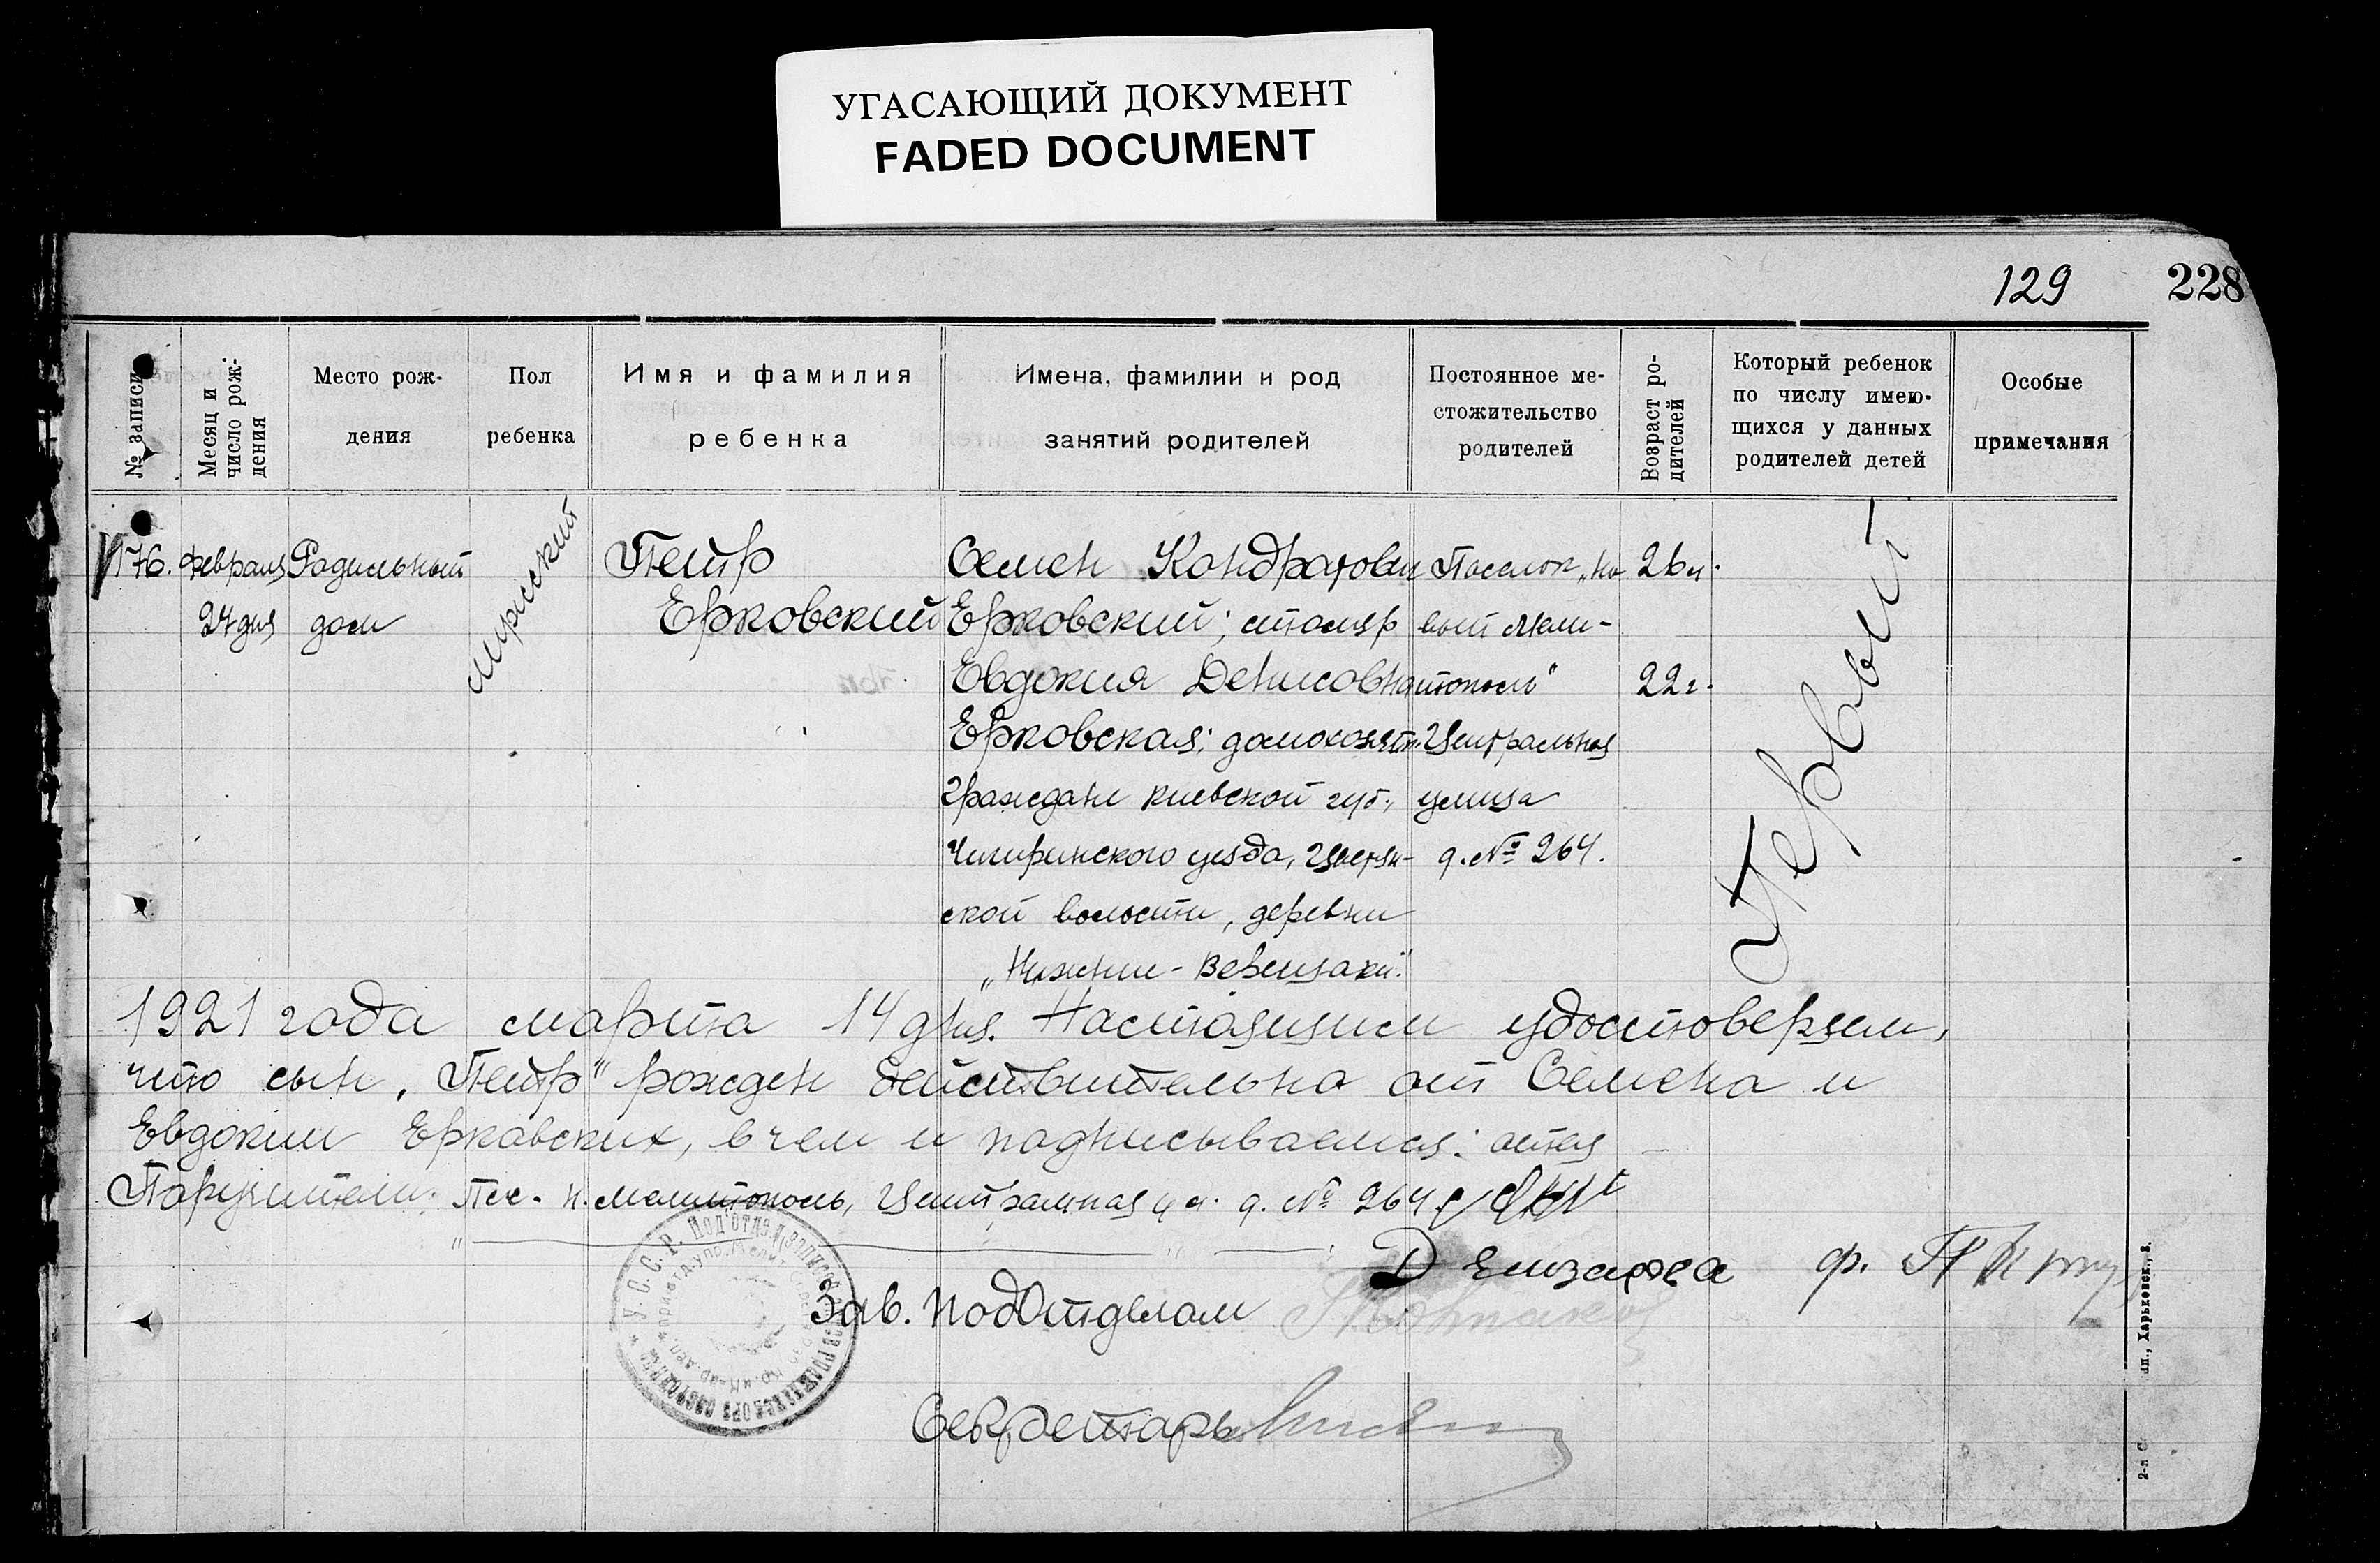 УГАСАЮЩИЙ ДОКУМЕНТ
FADED DOCUMENT
129
228
№ записи
Месяц и
число рож-
дения
Место рож-
дения
Пол
ребенка
Имя и фамилия
ребенка
Имена, фамилии и род
занятий родителей
Постоянное ме-
стожительство
родителей
Возраст ро-
дителей
Который ребенок
по числу имею-
щихся у данных
родителей детей
Особые
примечания
176.
февраля
27 дня
Родильный
дом
мужский
Петр
Ерковский
Семен Кондратови
Ерковский; столяр
Евдокия Денисовна
Ерковская; домохозяйк.
граждане киевской губ.,
Чигиринского уезда,
ской волости, деревни
„Нижние-Верещаки".
Поселок „Но
вый Мели-
тополь"
Центральная
улица
д. № 264.
26 л.
22 г.
Первый
1921 года марта 14 дня. Настоящим удостоверяем,
что сын, „Петр" рожден действительно от Семена и
Евдокии Ерковских, в чем и подписываемся:
Поручители: Пос. Н. Мелитополь, Центральная ул. д. № 264
Д Елизарова ф.
Зав. подотделом
Секретарь
У.С.С.Р. Под'отдел записей
2-я С
лп., Харьковск., 8.